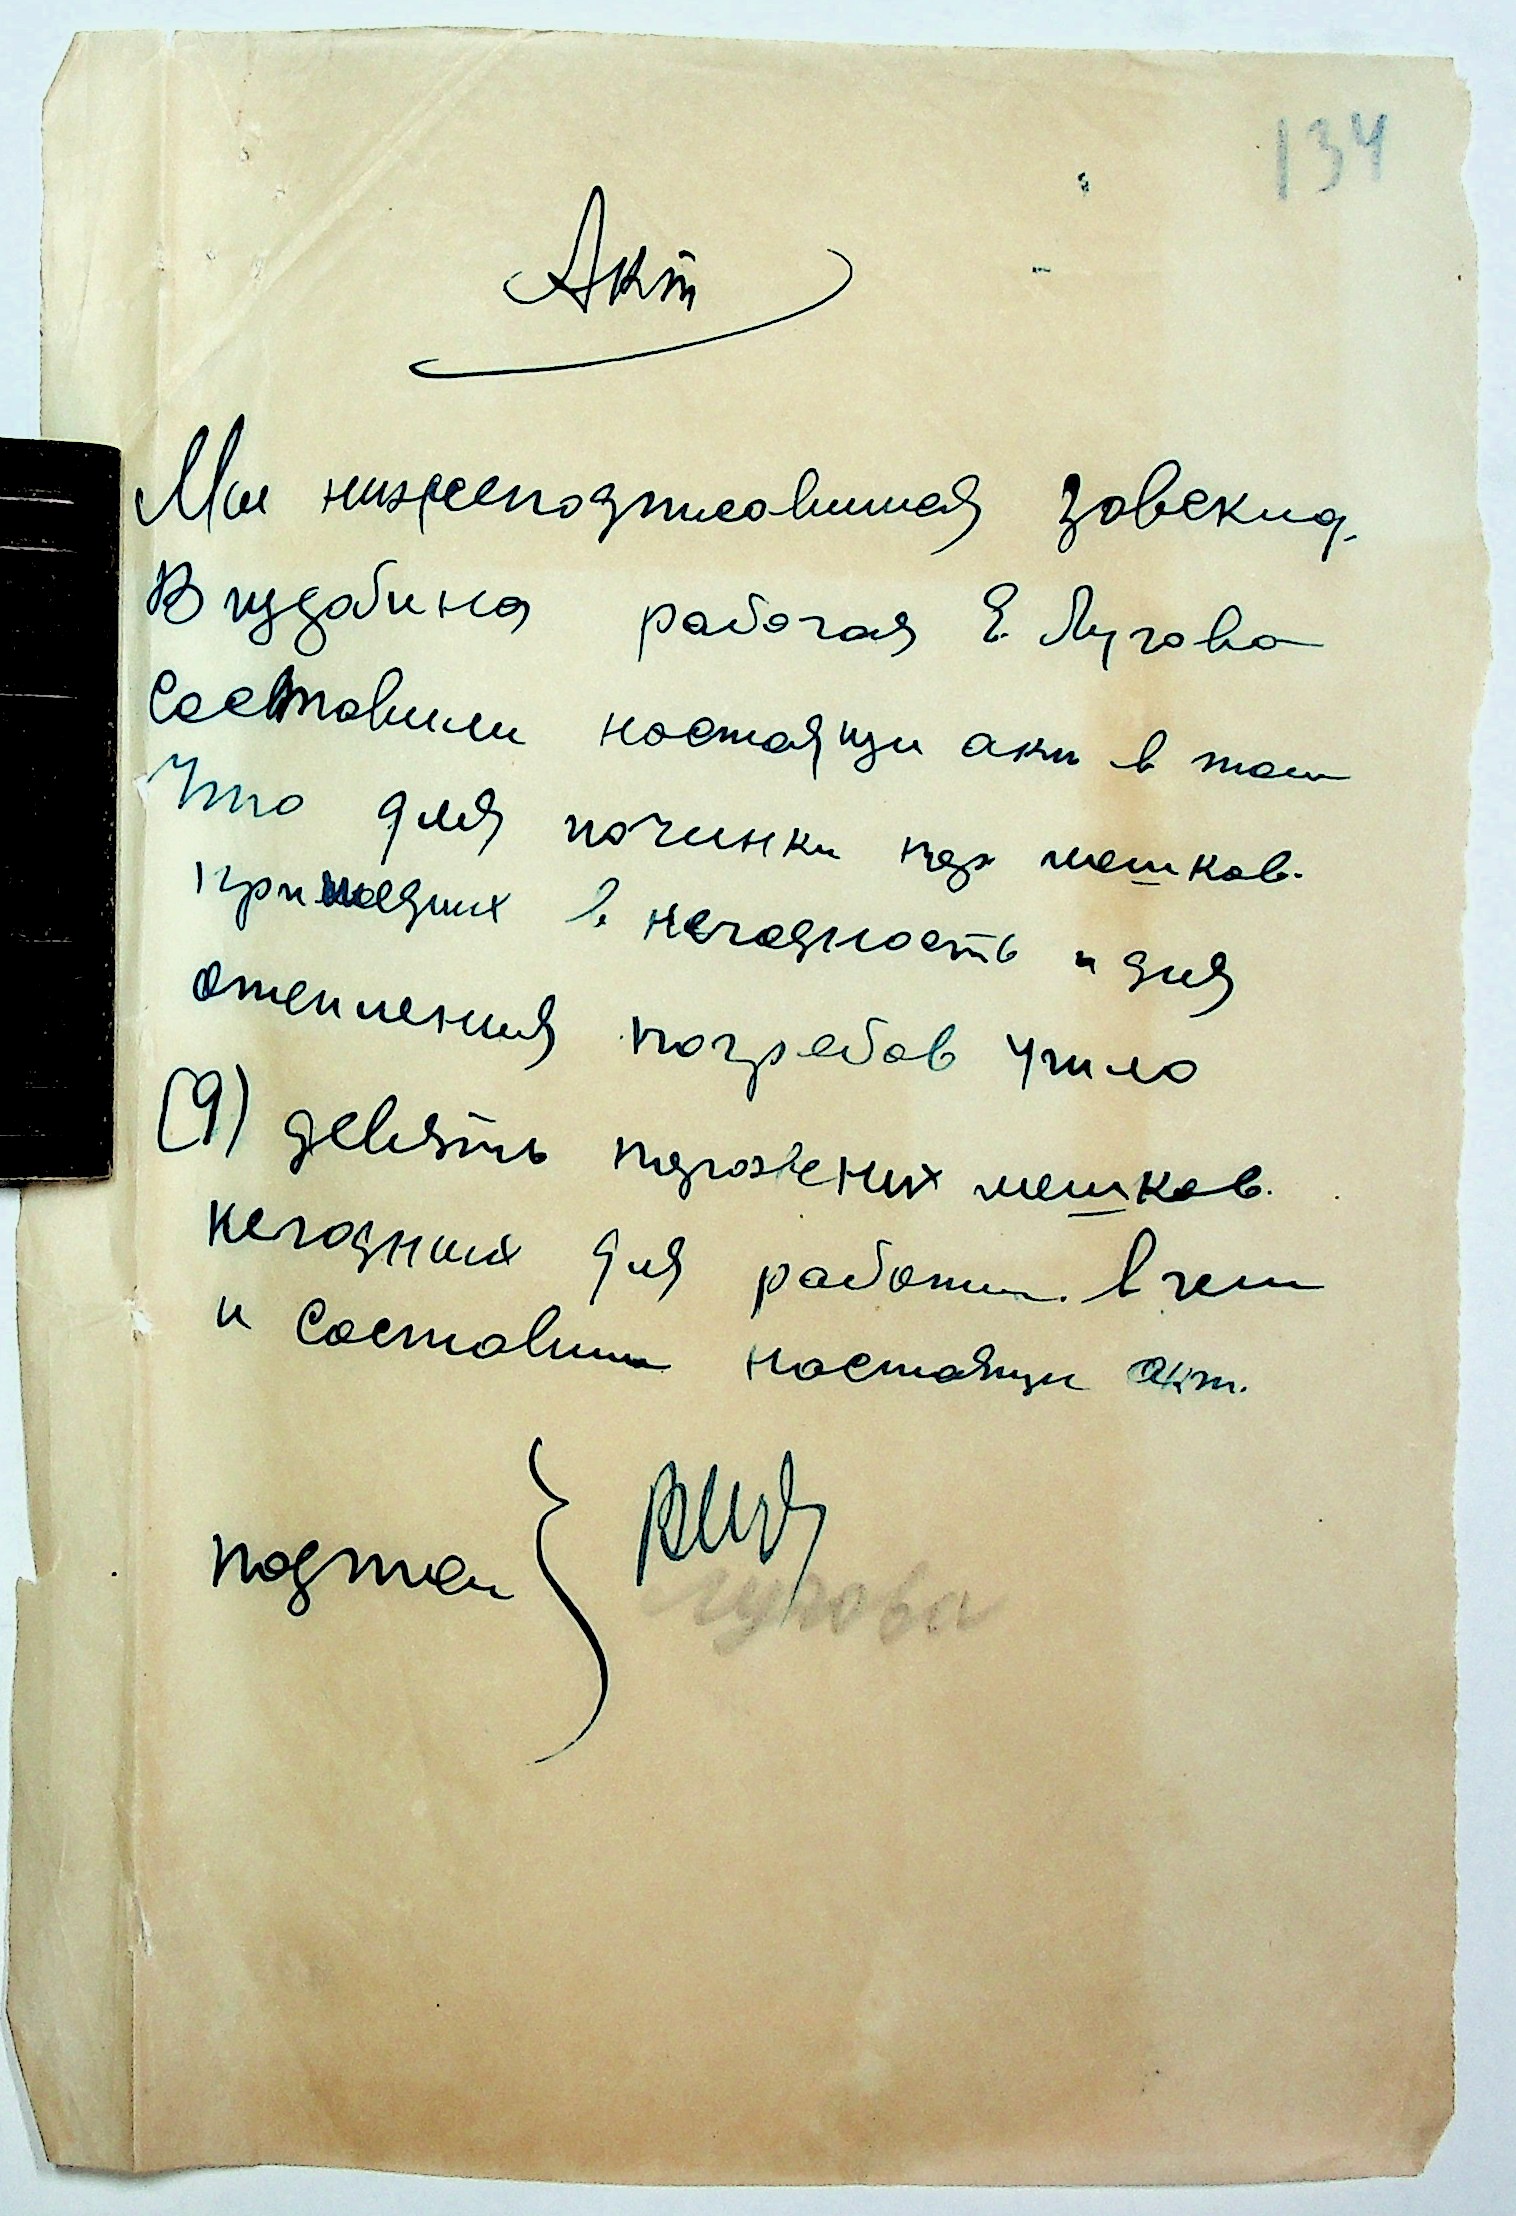 134
Акт
Мы нижеподписавшиеся завсклад.
В Щудобина рабочая Е. Лугова
составили настоящи акт в том
что для починки пор мешков.
пришедших в негодность и для
отепления погребов ушло
(9) девять порожених мешков.
негодных для работы. в чем
и составили настоящи акт.
подписи
Лугова